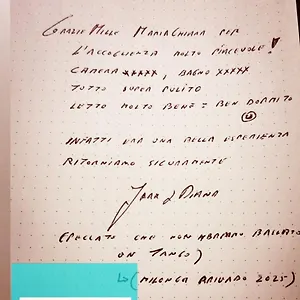 Grazie Mille Maria Chiara per
l'accoglienza molto piacevole!
Camera xxxxx, Bagno xxxxx
Tutto super pulito
Letto molto bene = ben dormito
Infatti era una bella esperienza
Ritorniamo sicuramente
& Diana
(Peccato che non abbiamo ballato
un tango)
(Milonga 2025)